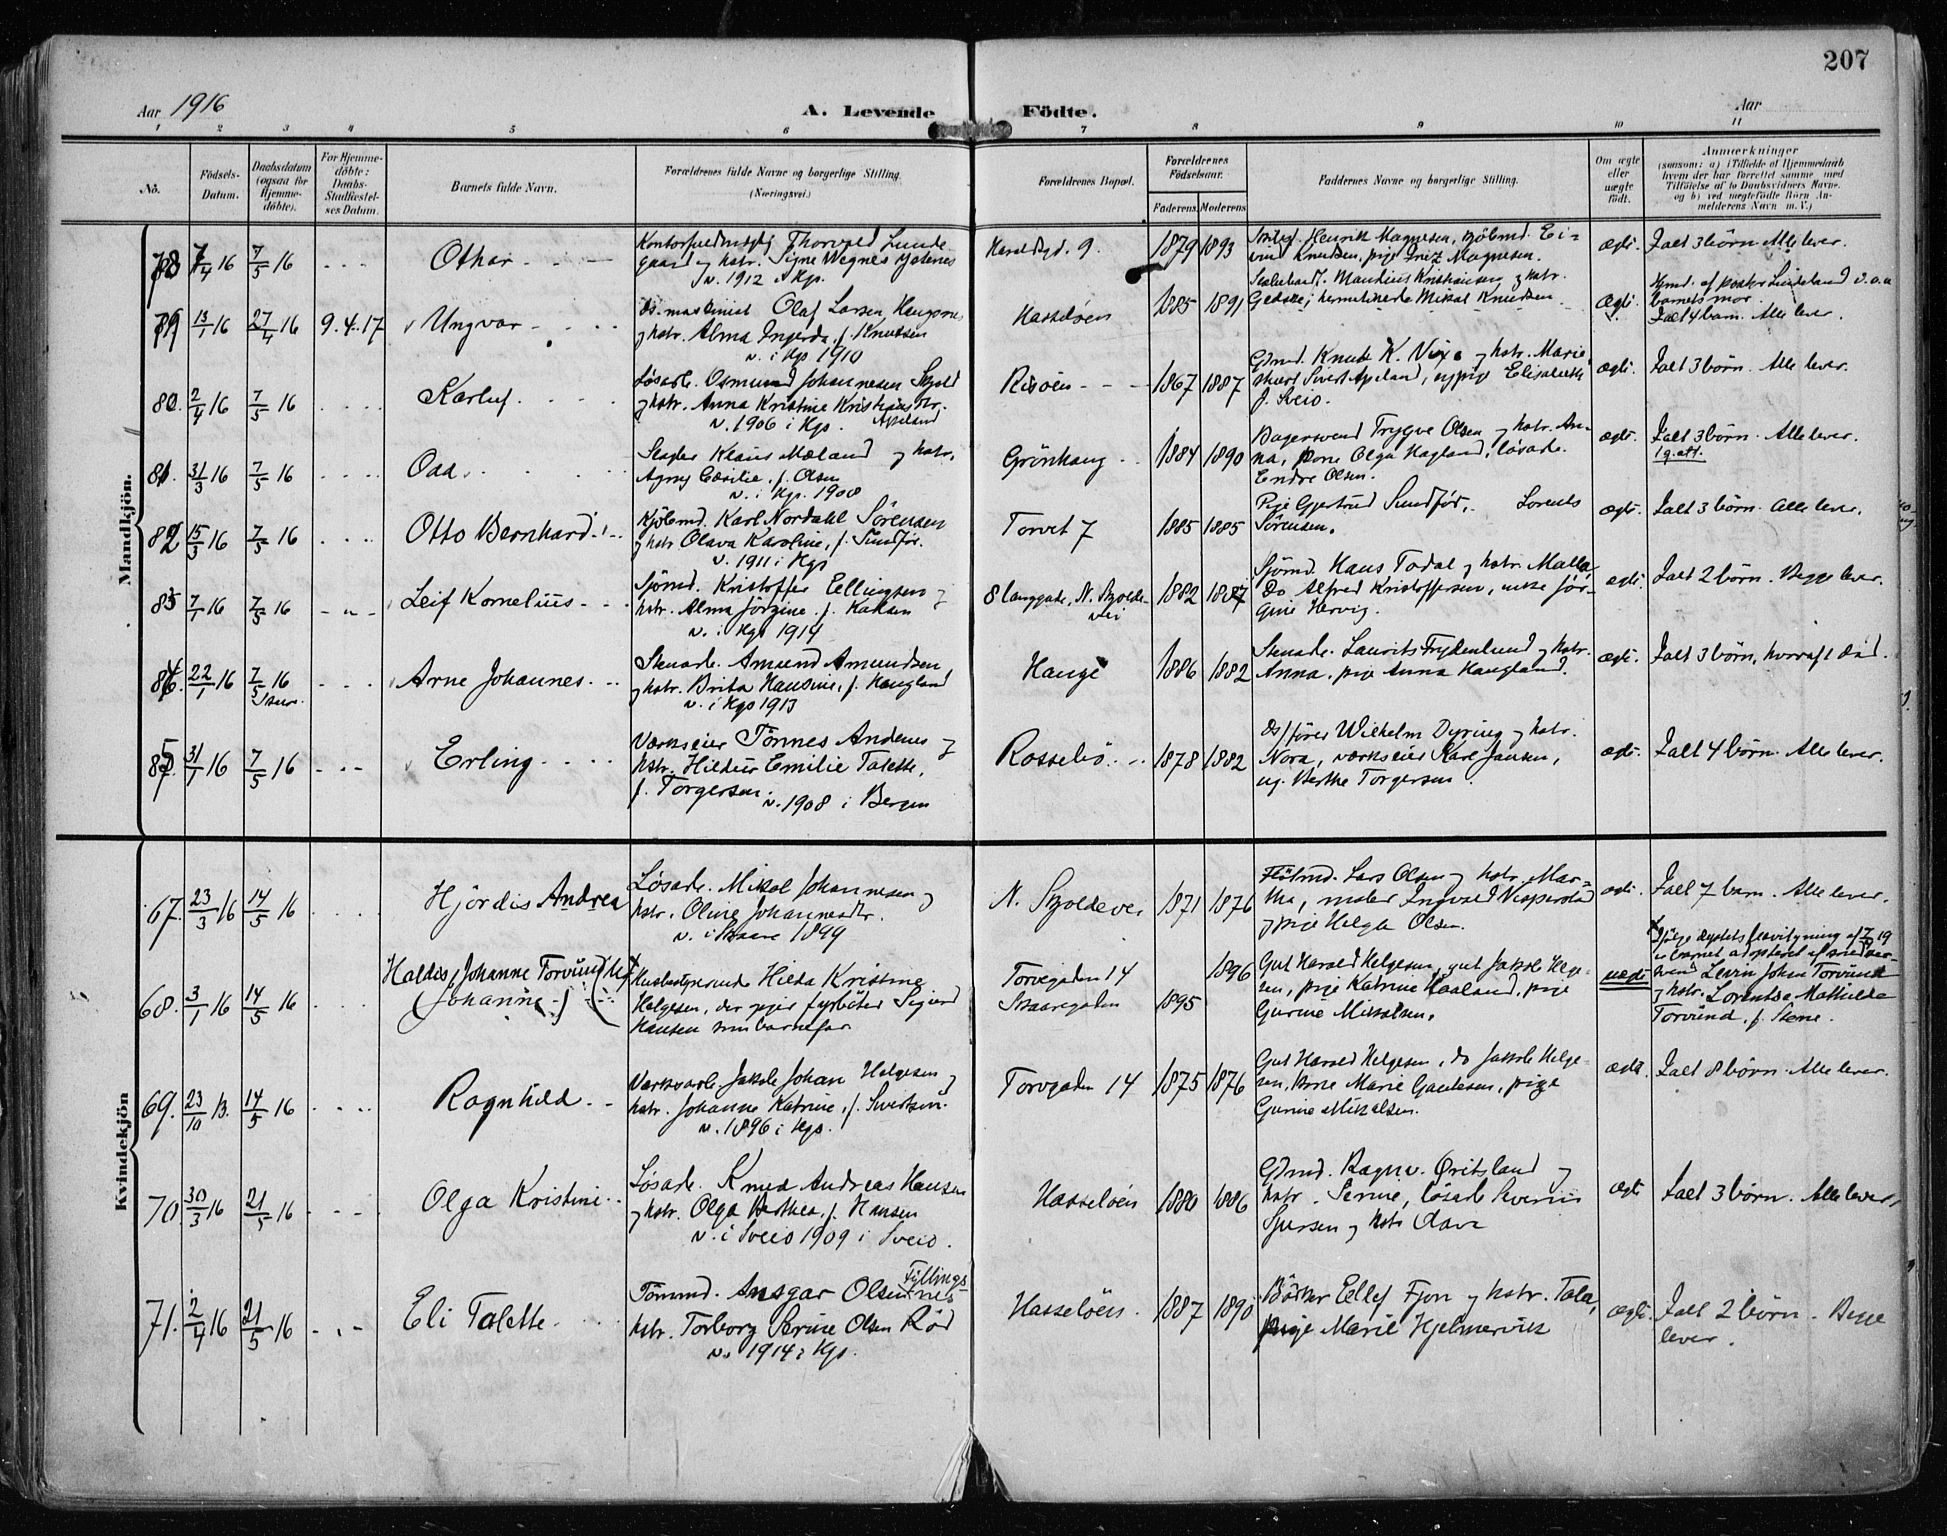 207
Aar 1916
A. Levende Födte.
Aar
1 2 3 4 5 6 7 8 9 10 11
No.
Födsels-Datum.
Daabsdatum (ogsaa for Hjemme-döbte).
For Hjemme-döbte: Daabs-Stadfæstel-ses Datum.
Barnets fulde Navn.
Forældrenes fulde Navne og borgerlige Stilling.
(Næringsvei.)
Forældrenes Bopæl.
Forældrenes Födselsaar.
Faderens. Moderens
Faddernes Navne og borgerlige Stilling.
Om ægte eller uægte födt.
Anmærkninger
(saasom: a) i Tilfælde af Hjemmedaab
hvem der har forrettet samme, med
Tilföielse af to Daabsvidners Navne.
og b) ved uægtefödte Börn An-
melderens Navn m. V.)
Mandkjön.
78 7/4 16 7/5 16 Othar
Kontorfuldmægtig Thorvald Lunde-
gaard og hstr. Signe
v. 1912 i Hgs.
9. 1879 1893
Henrik Magnesen, Ei-
Knudsen, pige Magnesen.
ægte. Ialt 3 börn. Alle lever.
79 13/1 16 27/4 16 9.4.17 Ungvar
Ds.maskinist Olaf Larsen
og hstr. Alma Ingerda, f. Knutsen
v. i Hgs 1910
Hasseløen 1885 1891
Kristiansen og hstr.
Mikal Knudsen
ægte. barnets mor.
Ialt 4 barn. Alle lever.
80. 2/4 16 7/5 16 Karluf
Løsarb. Osmund Johannesen
og hstr. Anna Kristine
v. 1906 i Hgs. Apeland
Risøen 1867 1887
Gmd. Knut K. og hstr. Marie
Sivert Apeland, Elisabeth
f. Sveio.
ægte. Ialt 3 börn. Alle lever.
81 31/3 16 7/5 16 Odd
Slagter Klaus Mæland og hstr.
Agnes Cecilie, f. Olsen
v. i Hgs. 1908
Grönhaug 1884 1890
Bagersvend Trygve Olsen og hstr. An-
na, Olga Hagland, løsarb.
Endre Olsen.
ægte. Ialt 3 börn. Alle lever.
82 15/3 16 7/5 16 Otto Bernhard
Kjöbmd. Karl Nordahl Sørensen
og hstr. Olava Karoline, f. Sundför.
v. 1911 i Hgs
Torvet 7 1885 1885
Pige Gjertrud Sundför, Lorents
Sørensen.
ægte. Ialt 3 börn. Alle lever.
83 7/1 16 7/5 16 Leif Kornelius
Sjömd. Kristoffer Ellingsen og
hstr. Alma Jörgine f.
v. i Hgs 1914
8 Langgade, N. Skolde-
vei 1882 1887
Sjömd. Hans Todal og hstr. Malla,
Do Alfred Kristoffersen, enke Jör-
gine Hervig.
ægte. Ialt 2 börn. Begge lever.
84 22/1 16 7/5 16 Arne Johannes
Stenarb. Amund Amundsen
og hstr. Brita Hansine, f. Haugland
v. i Hgs 1913
Hauge 1886 1882
Stenarb. Laurits Frydenlund og hstr.
Anna, pige Anna Haugland.
ægte. Ialt 3 börn, hvoraf 1 död.
85 31/1 16 7/5 16 Erling
Værkseier Tönnes Andenes og
hstr. Hildur Emilie Talette,
f. Torgersen. v. 1908 i Bergen
Rossebö 1878 1882
Ds/förer Wilhelm Dyring og hstr.
Nora, værkseier Karl Jansen,
ug. Berthe Torgersen.
ægte. Ialt 4 börn. Alle lever.
Kvindekjön
67. 23/3 16 14/5 16 Hjördis Andrea
Løsarb. Mikal Johannesen og
hstr. Oline Johannesdtr.
v. i Skaare 1899
N. Skoldevei 1871 1876
Lars Olsen og hstr. Mar-
tha, maler Ingvald
og pige Helga Olsen.
ægte. Ialt 7 barn. Alle lever.
68. 3/1 16 14/5 16 Haldis Johanne Torvund
(Johanne)
Husbestyrerinde Hilda Kristine
Helgesen, der opgir fyrböter Sigurd
Hansen som barnefar
Torvegaden 14 1896
Skaaregaten 1895
Gut Harald Helgesen, gut Jakob Helge-
sen, pige Katrine Haaland, pige
Gurine Mikalsen.
uægte
er barnet adopteret af
Levin Johan Torvund
og hstr. Lorentse Mathilde
Torvund, f. Stene.
69. 23/10 13. 14/5 16 Ragnhild
Værksarb. Jakob Johan Helgesen og
hstr. Johanne Katrine, f. Sivertsen.
v. 1896 i Hgs.
Torvgaden 14 1875 1876
Gut Harald Helgesen, do Jakob Helge-
sen, Marie Gautesen, pige
Gurine Mikalsen.
ægte. Ialt 8 börn. Alle lever.
70. 30/3 16 21/5 16 Olga Kristine
Løsarb. Knud Andreas Hansen
og hstr. Olga Berthea, f. Hansen
v. i Sveio 1909 i Sveio.
Hasseløen 1880 1886
Gmd. Ragnv. Øritsland og
hstr. Serine, løsarb Severin
Sjursen og hstr Olava
ægte Ialt 3 börn. Alle lever.
71. 2/4 16 21/5 16 Eli Talette
Tömmd. Ansgar Olsen Fyllingsnes
hstr. Torborg Serine Olsen Röd
v. 1914 i Hgs.
Hasseløen 1887 1890
Bödker Ellef Fjon og hstr. Tala,
pige Marie Hjelmervik
ægte. Ialt 2 börn. Begge
lever.